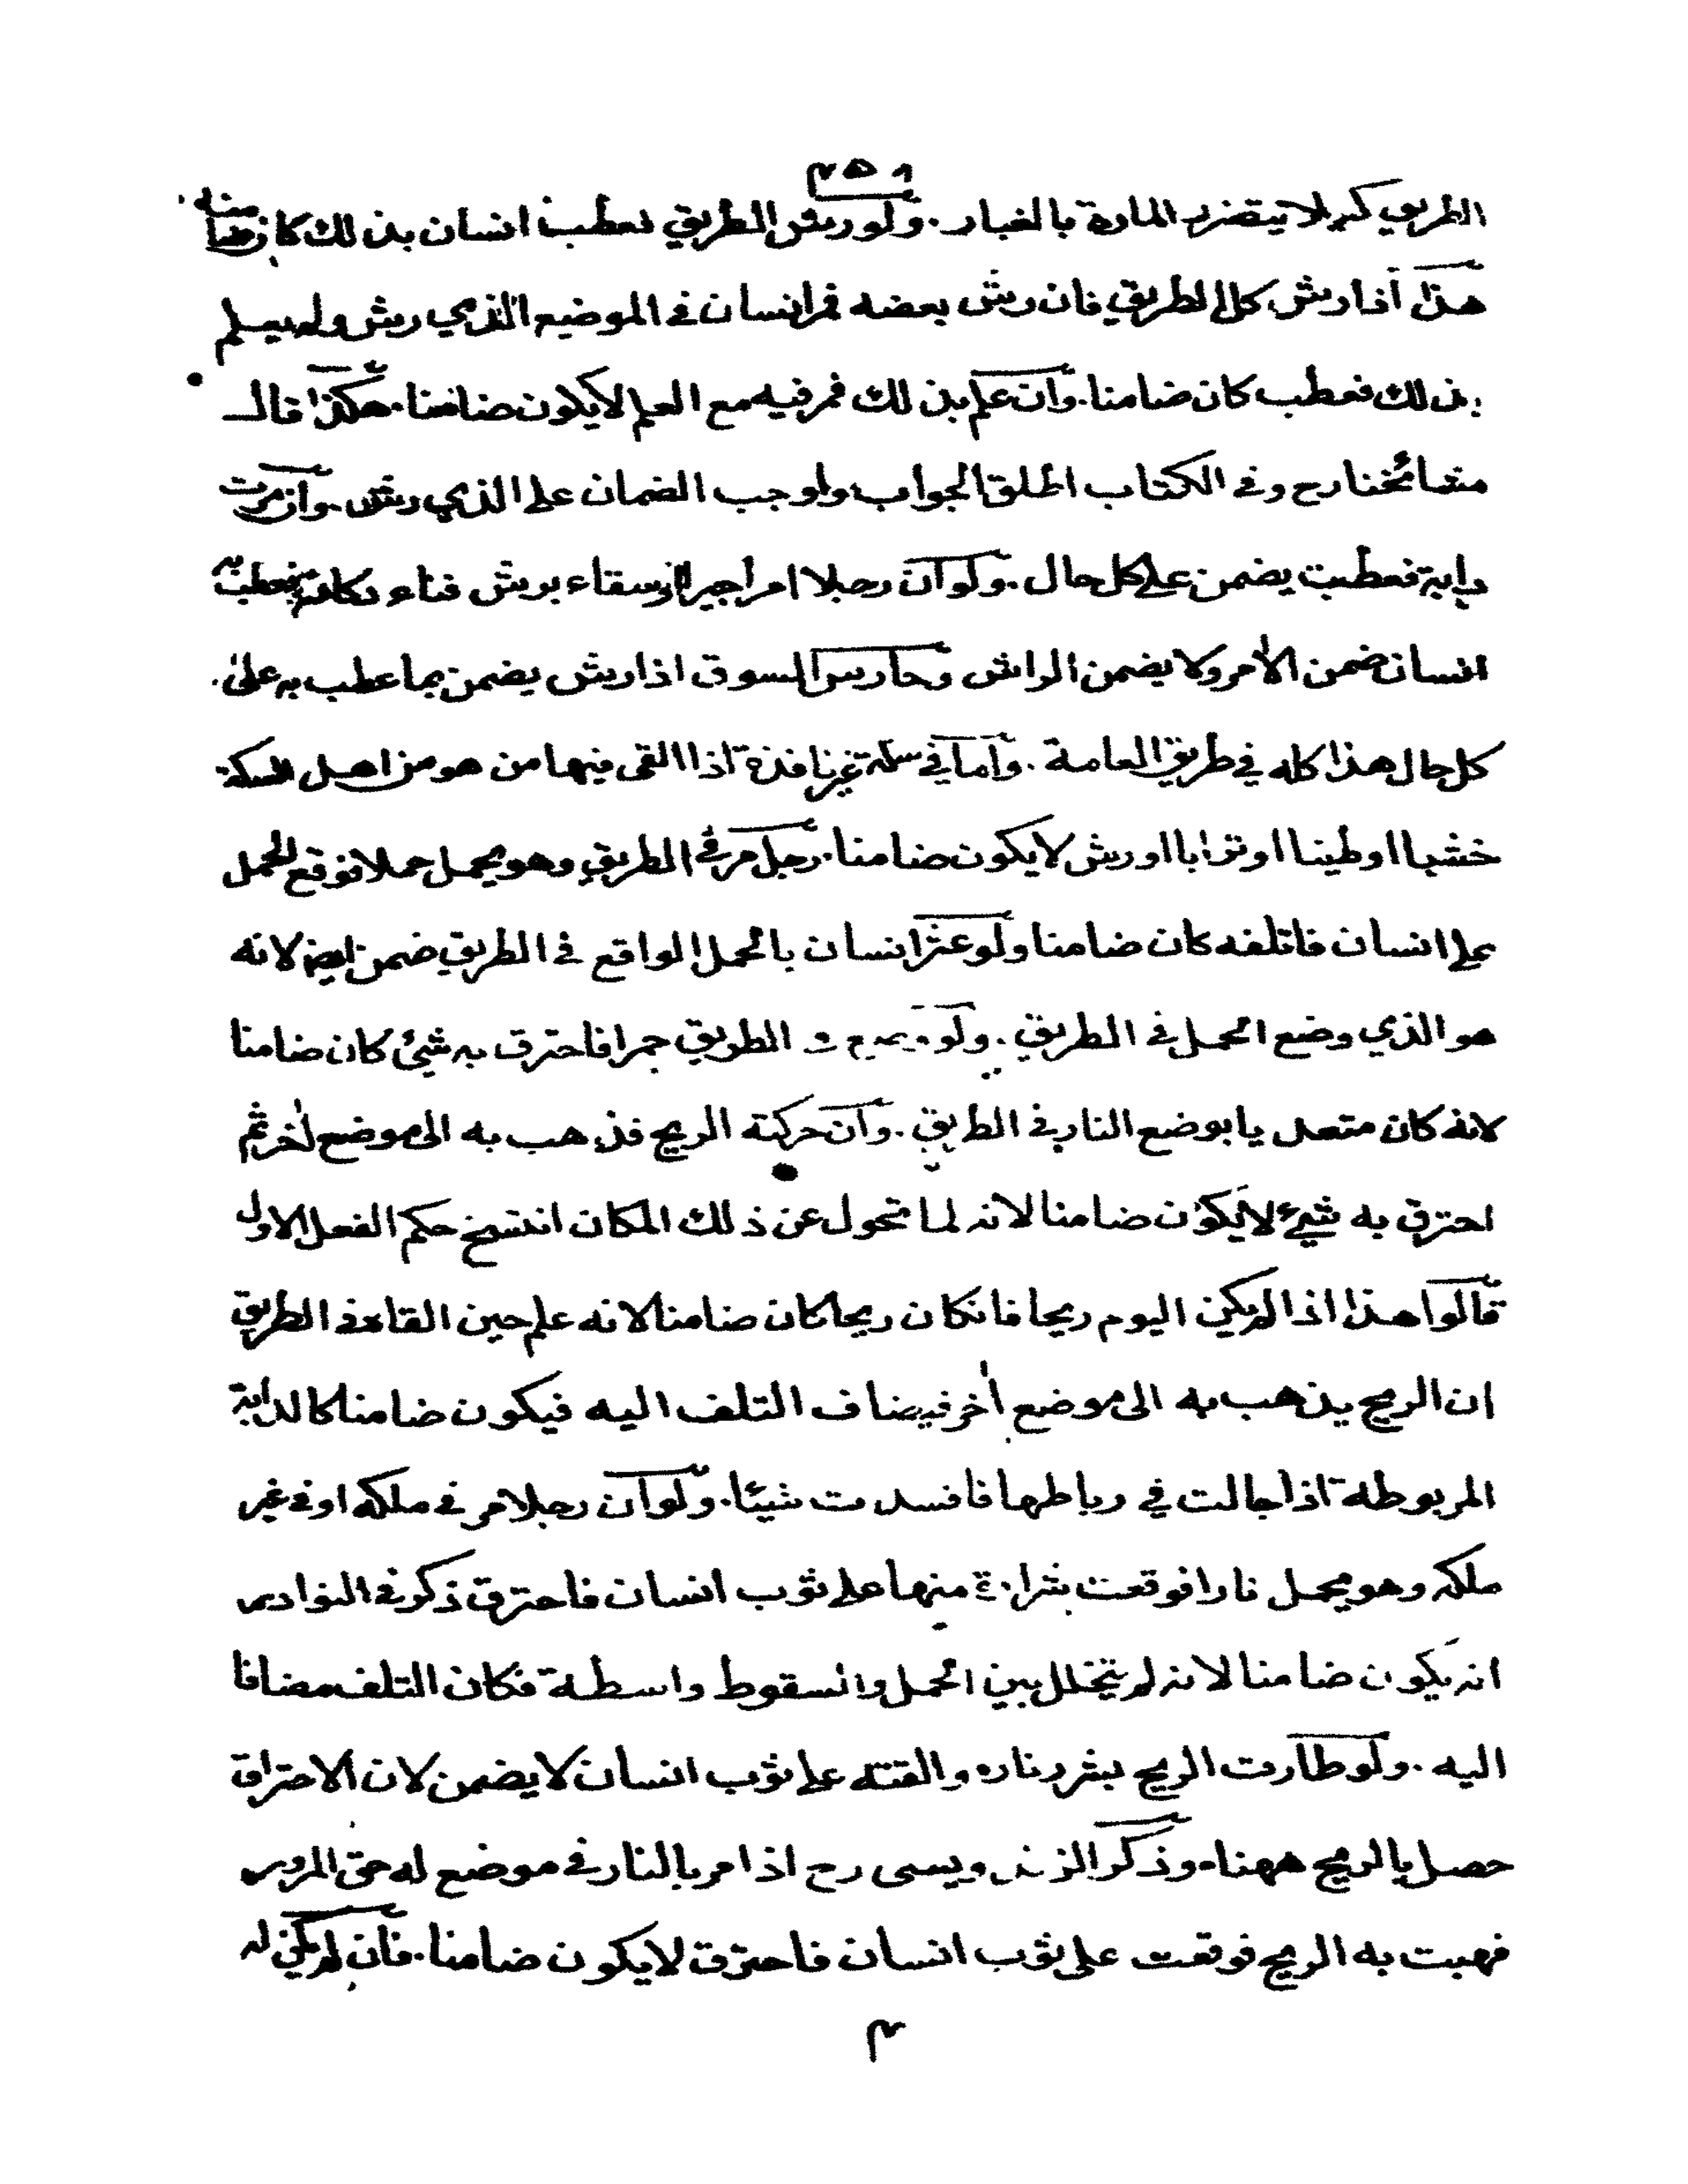 ٢٥٨
الطريق كيلا يتضرر المارة بالغبار . ولو رش الطريق فعطب انسان بذلك كان ضامنا
هذا اذا رش كل الطريق فان رش بعضه فمر انسان في الموضع الذي رش ولم يعلم
بذلك فعطب كان ضامنا . وان علم بذلك فمر فيه مع العلم لا يكون ضامنا . هكذا قال
مشائخنا رح وفي الكتاب اطلق الجواب واوجب الضمان على الذي رش . وان مرت
دابة فعطبت يضمن على كل حال . ولو ان رجلا امر اجيرا او سقاء برش فناء دكانه فعطب به
انسان ضمن الآمر ولا يضمن الراش وحارس السوق اذا رش يضمن بما عطب به على
كل حال هذا كله في طريق العامة . واما في سكة غير نافذة اذا القى فيها من هو من اهل السكة
خشبا او طينا او ترابا او رش لا يكون ضامنا . رجل مر في الطريق وهو يحمل حملا فوقع الحمل
على انسان فاتلفه كان ضامنا ولو عثر انسان بالحمل الواقع في الطريق ضمن ايضا لانه
هو الذي وضع الحمل في الطريق . ولو وضع في الطريق جمرا فاحترق به شيئ كان ضامنا
لانه كان متعديا بوضع النار في الطريق . وان حركته الريح فذهب به الى موضع آخر ثم
احترق به شيئ لا يكون ضامنا لانه لما تحول عن ذلك المكان انتسخ حكم الفعل الاول
قالوا هذا اذا لم يكن اليوم ريحا فانكان ريحا كان ضامنا لانه علم حين القاه في الطريق
ان الريح يذهب به الى موضع آخر فيضاف التلف اليه فيكون ضامنا كالدابة
المربوطة اذا جالت في رباطها فافسدت شيئا . ولو ان رجلا مر في ملكه او في غير
ملكه وهو يحمل نارا فوقعت شرارة منها على ثوب انسان فاحترق ذكر في النوادر
انه يكون ضامنا لانه لم يتخلل بين الحمل والسقوط واسطة فكان التلف مضافا
اليه . ولو طارت الريح بشرر ناره والقته على ثوب انسان لا يضمن لان الاحتراق
حصل بالريح ههنا . وذكر الزندويسى رح اذا مر بالنار في موضع له حق المرور
فهبت به الريح فوقعت على ثوب انسان فاحترق لا يكون ضامنا . فان لم يكن له